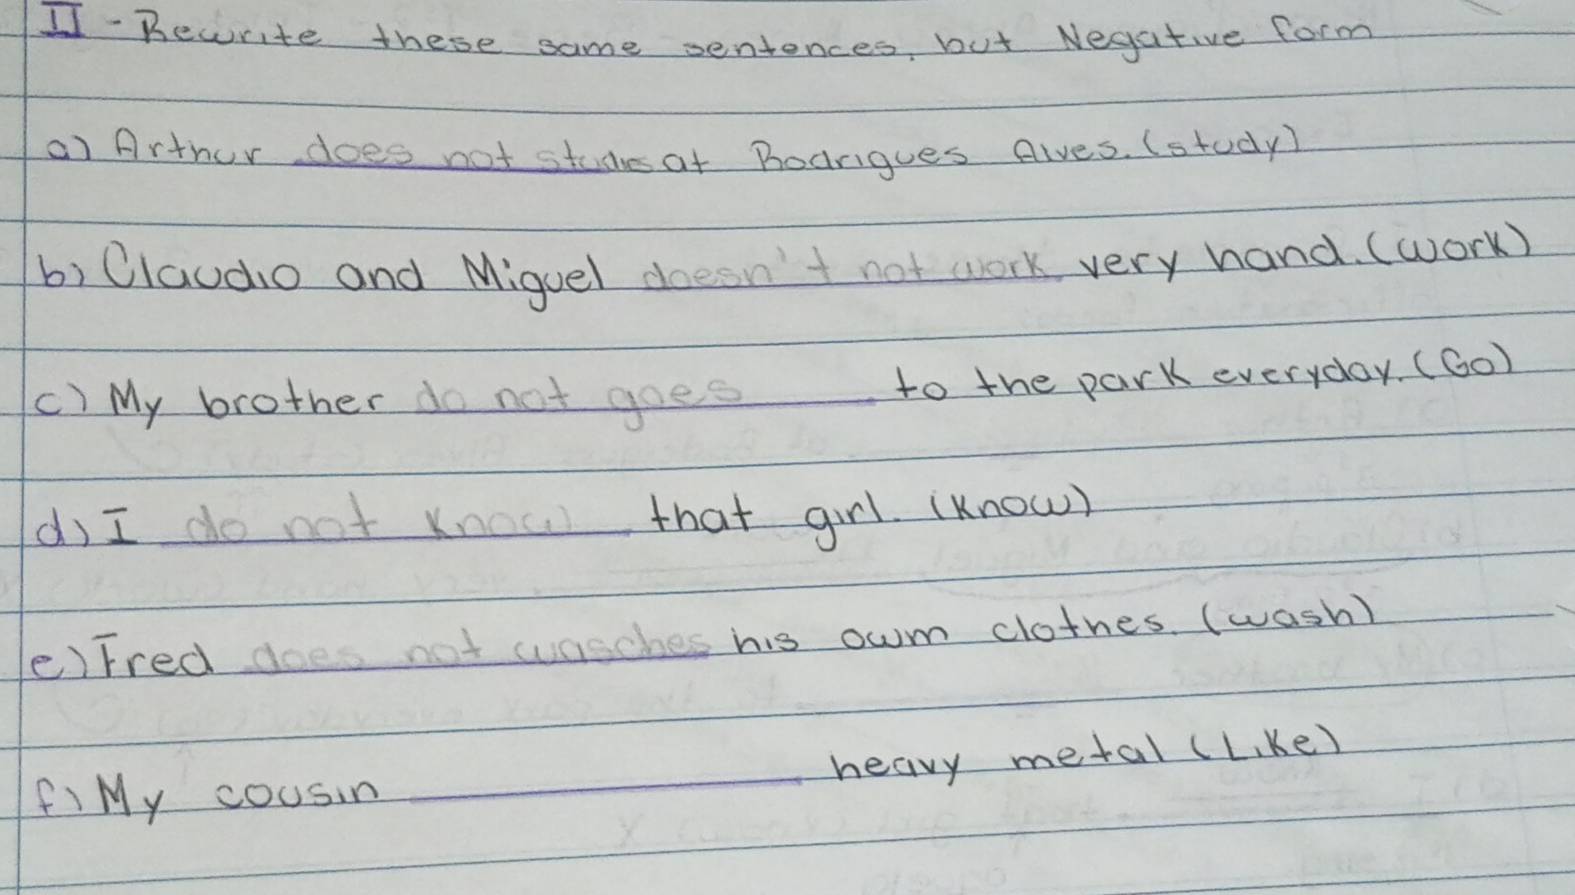 II - Rewrite these same sentences, but Negative form
a) Arthur does not studies at Rodrigues Alves. (study)
b) Claudio and Miguel doesn't not work very hand. (work)
c) My brother do not goes to the park everyday. (Go)
d) I do not know that girl. (know)
e) Fred does not wasches his owm clothes. (wash)
f) My cousin heavy metal (Like)